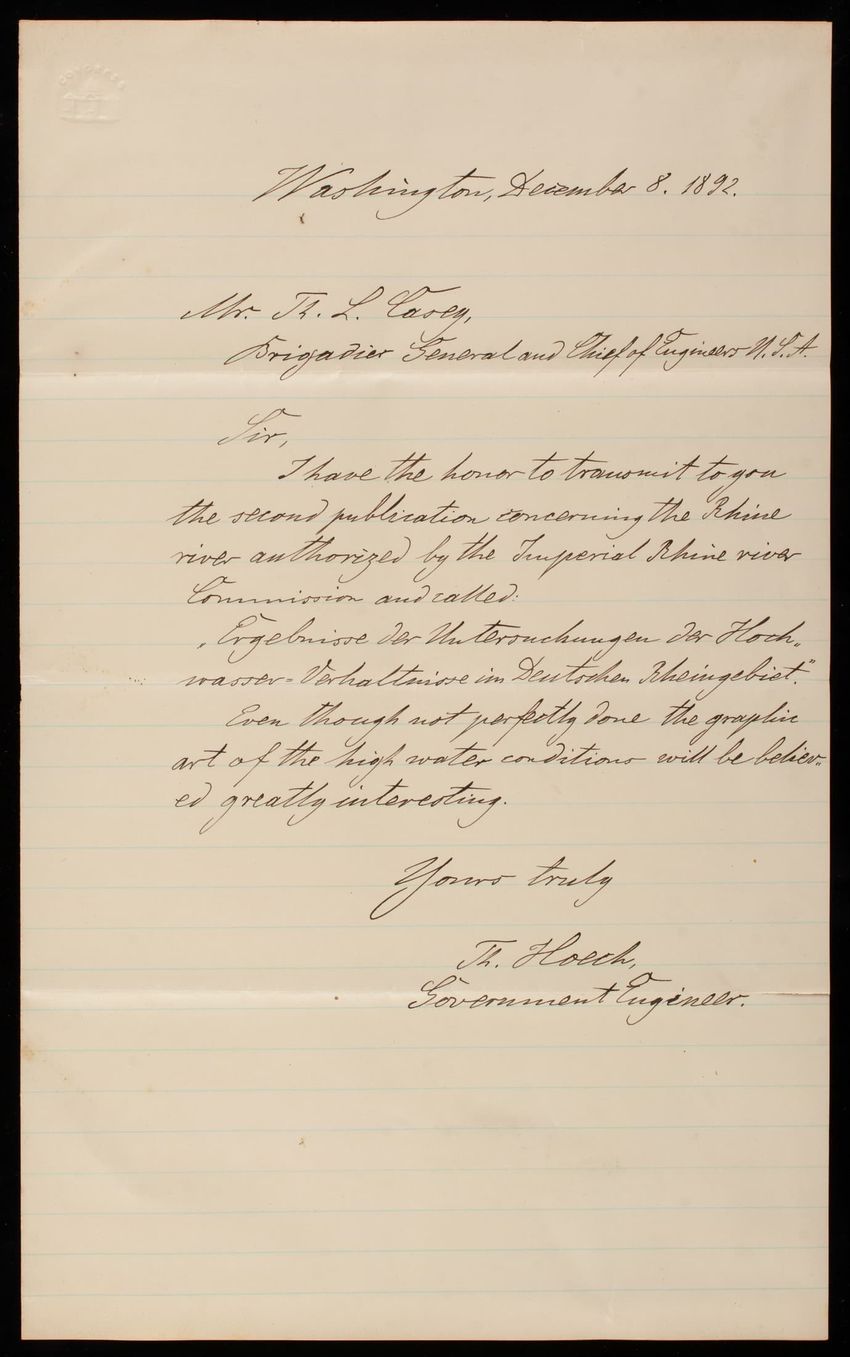 CONGRESS
Washington, December 8. 1892.
Mr. Th. L. Casey,
Brigadier General and Chief of Engineers U.S.A.
Sir,
I have the honor to transmit to you
the second publication concerning the Rhine
river authorized by the Imperial Rhine river
Commission and called:
„Ergebnisse der Untersuchungen der Hoch„
wasser=Verhaltnisse im Deutschen Rheingebiet."
Even though not perfectly done the graphic
art of the high water conditions will be believ„
ed greatly interesting.
Yours truly
Th. Hoech,
Government Engineer.